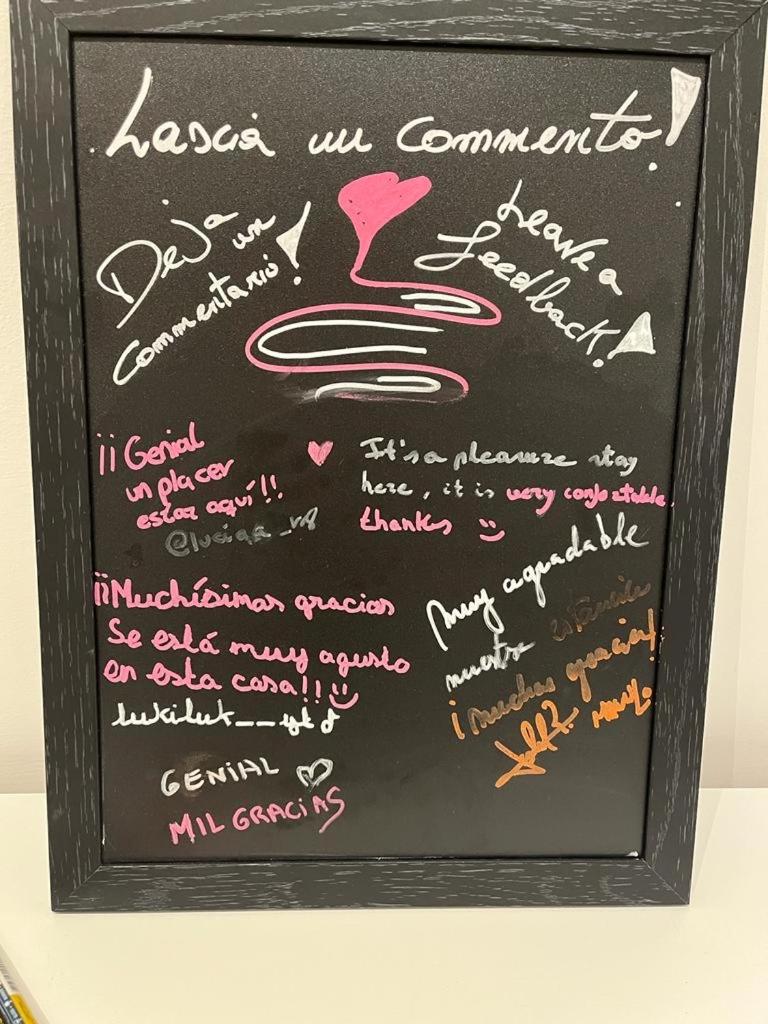 Lascia un commento!
Deja un
commentario!
Leave a
feedback!
¡¡Genial
un placer
estar aquí!!
It's a pleasure stay
here, it is very confortable,
thanks
¡¡Muchísimas gracias
Se está muy agusto
en esta casa!!
Muy agradable
nuestra estancia
¡Muchas gracias!
GENIAL
MIL GRACIAS